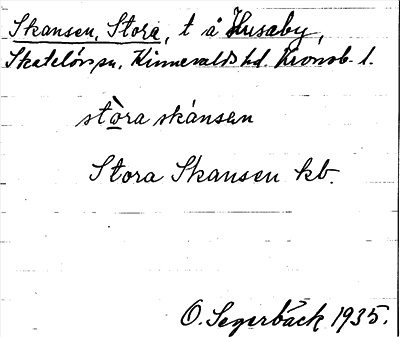 Skansen, Stora, t å Husaby,
Skatelövs sn, Kinnevalds hd. Kronob. l.
stòra skánsen
Stora Skansen kb.
O. Segerbäck 1935.